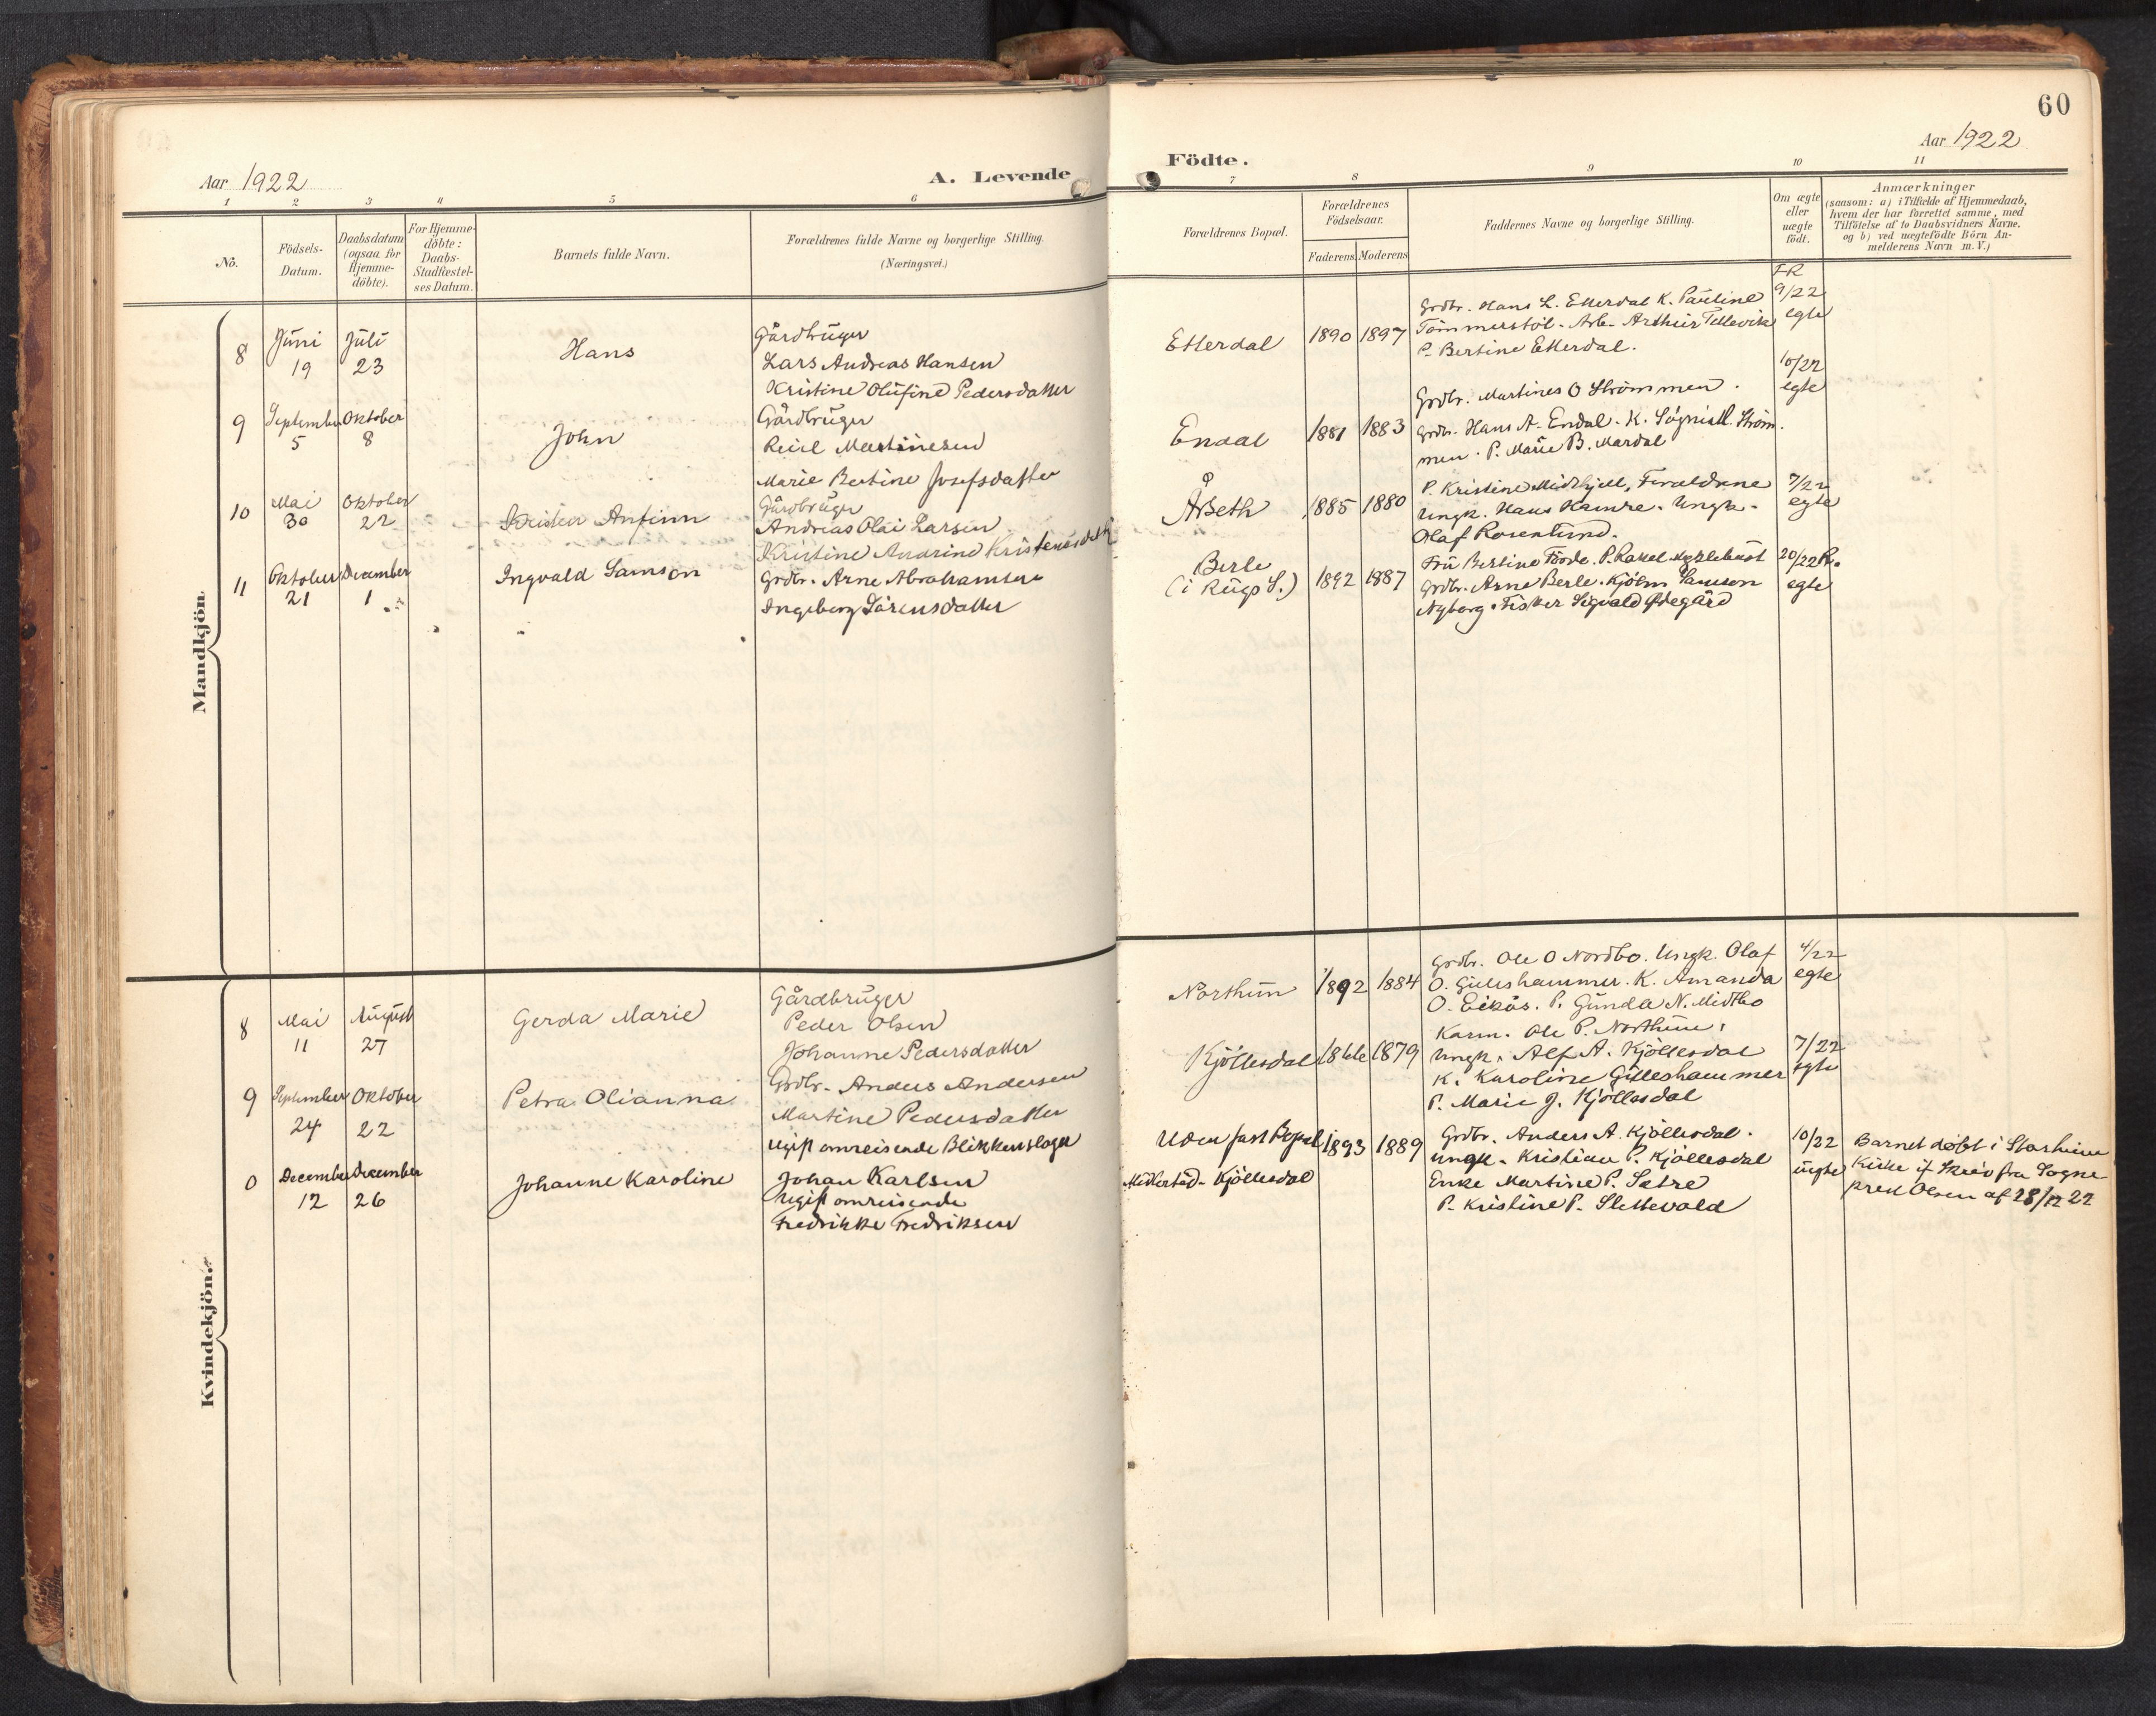 60
Aar 1922
A. Levende
Födte.
Aar 1922
1 2 3 4 5 6 7 8 9 10 11
No.
Födsels-
Datum.
Daabsdatum
(ogsaa for
Hjemme-
döbte).
For Hjemme-
döbte:
Daabs-
Stadfæstel-
ses Datum.
Barnets fulde Navn.
Forældrenes fulde Navne og borgerlige Stilling.
(Næringsvei.)
Forældrenes Bopæl.
Forældrenes
Födselsaar.
Faderens Moderens
Faddernes Navne og borgerlige Stilling.
Om ægte
eller
uægte
födt.
Anmærkninger
(saasom: a) i Tilfælde af Hjemmedaab,
hvem der har forrettet samme, med
Tilföielse af to Daabsvidners Navne.
og b) ved uægtefödte Börn An-
melderens Navn m. V.)
Mandkjön
8
Juni
19
Juli
23
Hans
Gårdbruger
Lars Andreas Hansen
Kristine Olufine Pedersdatter
Etterdal
1890 1897
Grdbr. Hans L. Etterdal K. Pauline
Tömmerstöl. Arb. Arthur Tellevik
P. Bertine Etterdal.
FR
9/22
egte
9
September
5
Oktober
8
John
Gårdbruger
Martinesen
Marie Bertine Josefsdatter
Endal
1881 1883
Grdbr. Martines O Strömmen.
Grdbr. Hans A. Endal. K. Ström
men. P. Marie B. Mardal
10/22
egte
10
Mai
30
Oktober
22
Anfinn
Gårdbruger
Andreas Olai Larsen
Kristine Andrine
Årseth
1885 1880
P. Kristine Foreldrene
Ungk. Hans Hamre. Ungk.
Olaf Rosenlund.
7/22
egte
11
Oktober
21
December
1
Ingvald Samson
Grdbr. Arne Abrahamsen
Ingeborg Sörensdatter
Berle
(i Rugs S.)
1892 1887
Fru Bertine Förde. P. Rakel Myklebust
Grdbr. Arne Berle. Kjöbm Samson
Nyborg. Fisker Sigvald Ødegård
20/22
egte
Kvindekjön.
8
Mai
11
August
27
Gerda Marie
Gårdbruger
Peder Olsen
Johanne Pedersdatter
Northun
1892 1884
Grdbr. Ole O Nordbo. Ungk. Olaf
O. Gilleshammer. K. Amanda
O. Eikås. P. Gunda N. Midtbo
4/22
egte
9
September
24
Oktober
22
Petra Olianna
Grdbr. Anders Andersen
Martine Pedersdatter
Kjöllesdal
1879
Karm. Ole P. Northun.
Ungk. Alf A. Kjöllesdal
K. Karoline Gilleshammer
P. Marie J. Kjöllesdal
7/22
egte
0
December
12
December
26
Johanne Karoline
Ugift omreisende Blikkenslager
Johan Karlsen
Ugift omreisende
Fredrikke Fredriksen
Uden fast Bopæl
Midlertid. Kjöllesdal
1893 1889
Grdbr. Anders A. Kjöllesdal.
Ungk. Kristian P. Kjöllesdal
Enke Martine P. Sætre
P. Kristine P. Slettevold
10/22
uegte
Barnet döbt i Starheim
Kirke if Skriv fra Sogne
prest Olsen af 28/12 22